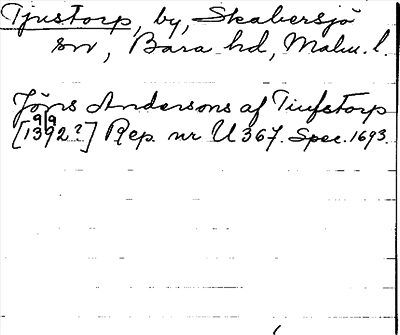 Tjustorp, by, Skabersjö
sn, Bara hd, Malm. l.
Jöns Andersons af Tiufstorp
[1392?] Rep. nr U 367. Spec. 1693.